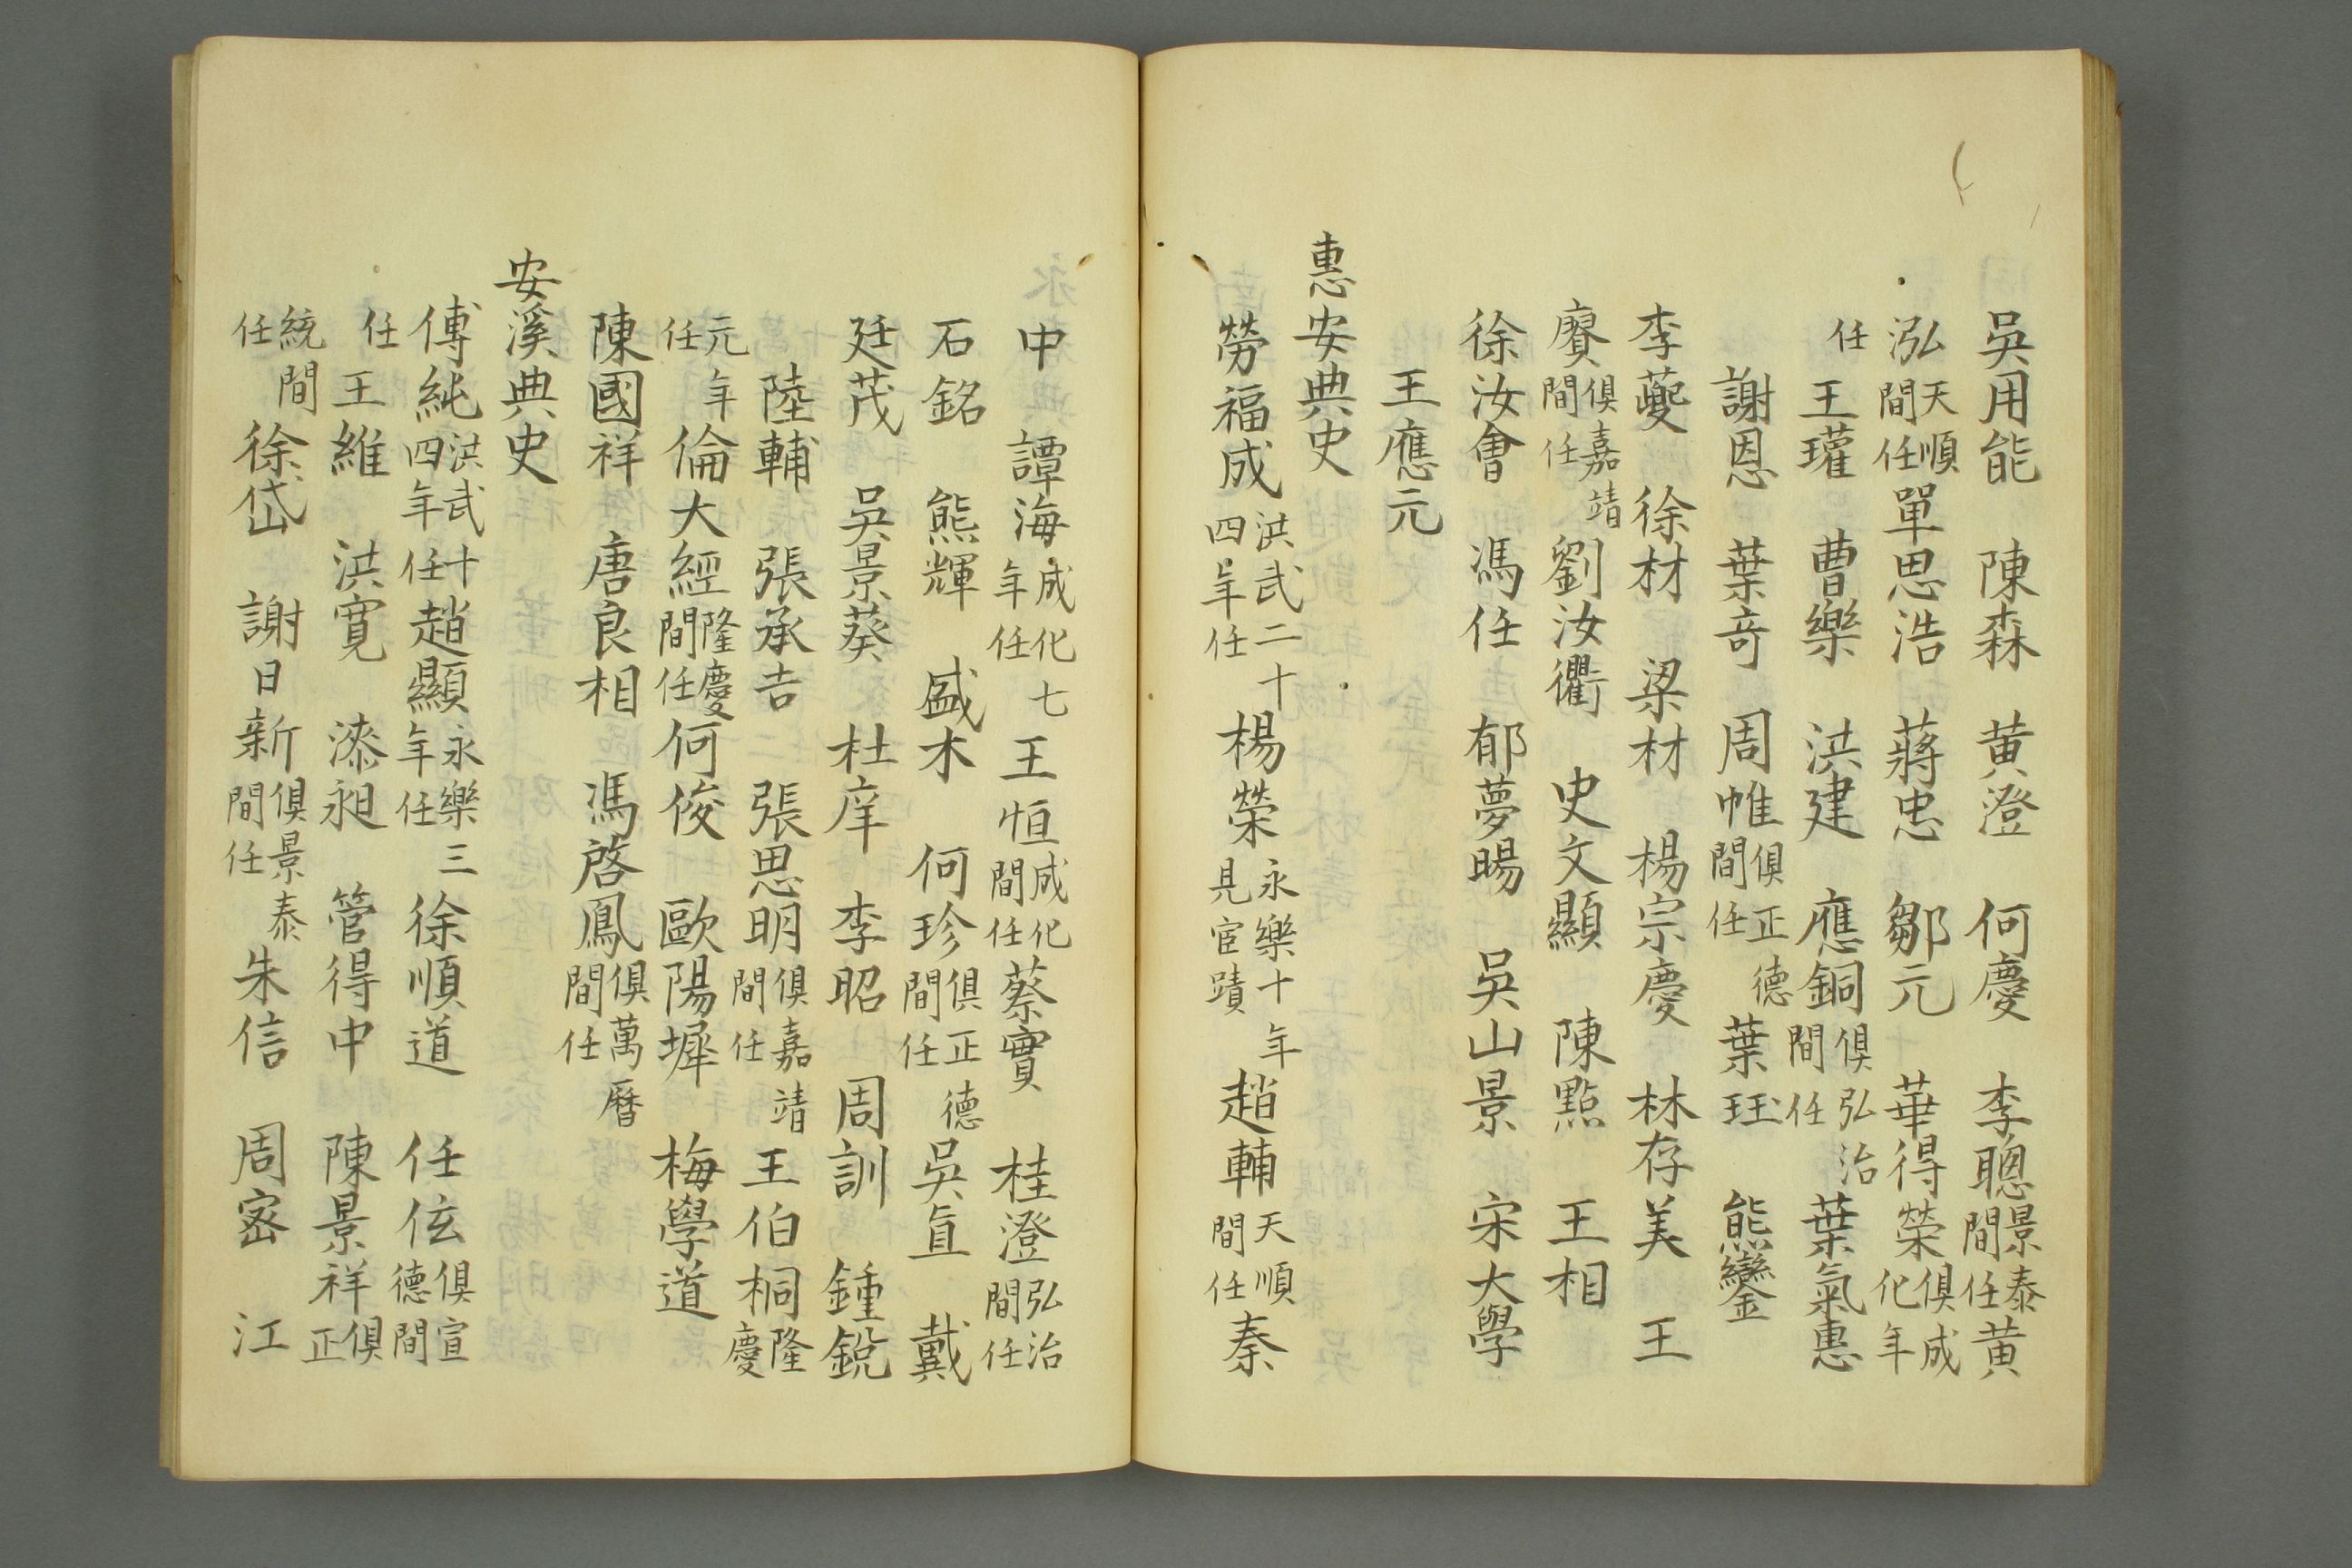 吳用能　陳森　黄澄　何慶　李聰景泰間任黄
泓天順間任單思浩　蔣忠　鄒元　華得榮俱成化年
任　王瓘　曹樂　洪建　應銅俱弘治間任　葉氣惠
謝恩　葉竒　周帷俱正德間任　葉珏　熊鑾
李夔　徐材　梁材　楊宗慶　林存美　王
賡俱嘉靖間任劉汝衢　史文顯　陳㸃　王相
徐汝會　馮任　郁夢暘　吳山景　宋大學
王應元
惠安典史
勞福成洪武二十四年任　楊榮永樂十年見宦蹟　趙輔天順間任秦
中　譚海成化七年任　王恒成化間任蔡實　桂澄弘治間任
石銘　熊輝　盛木　何珍俱正德間任　吳直　戴
廷茂　吳景葵　杜庠　李昭　周訓　鍾銳
陸輔　張承吉　張思明俱嘉靖間任　王伯桐隆慶
元年任　倫大經隆慶間任何俊　歐陽墀　梅學道
陳國祥　唐良相　馮啓鳳俱萬曆間任
安溪典史
傅純洪武十四年任趙顯永樂三年任　徐順道　任伭俱宣德間
任　王維　洪寬　漆昶　管得中　陳景祥俱正
統間任　徐岱　謝日新俱景泰間任　朱信　周密　江